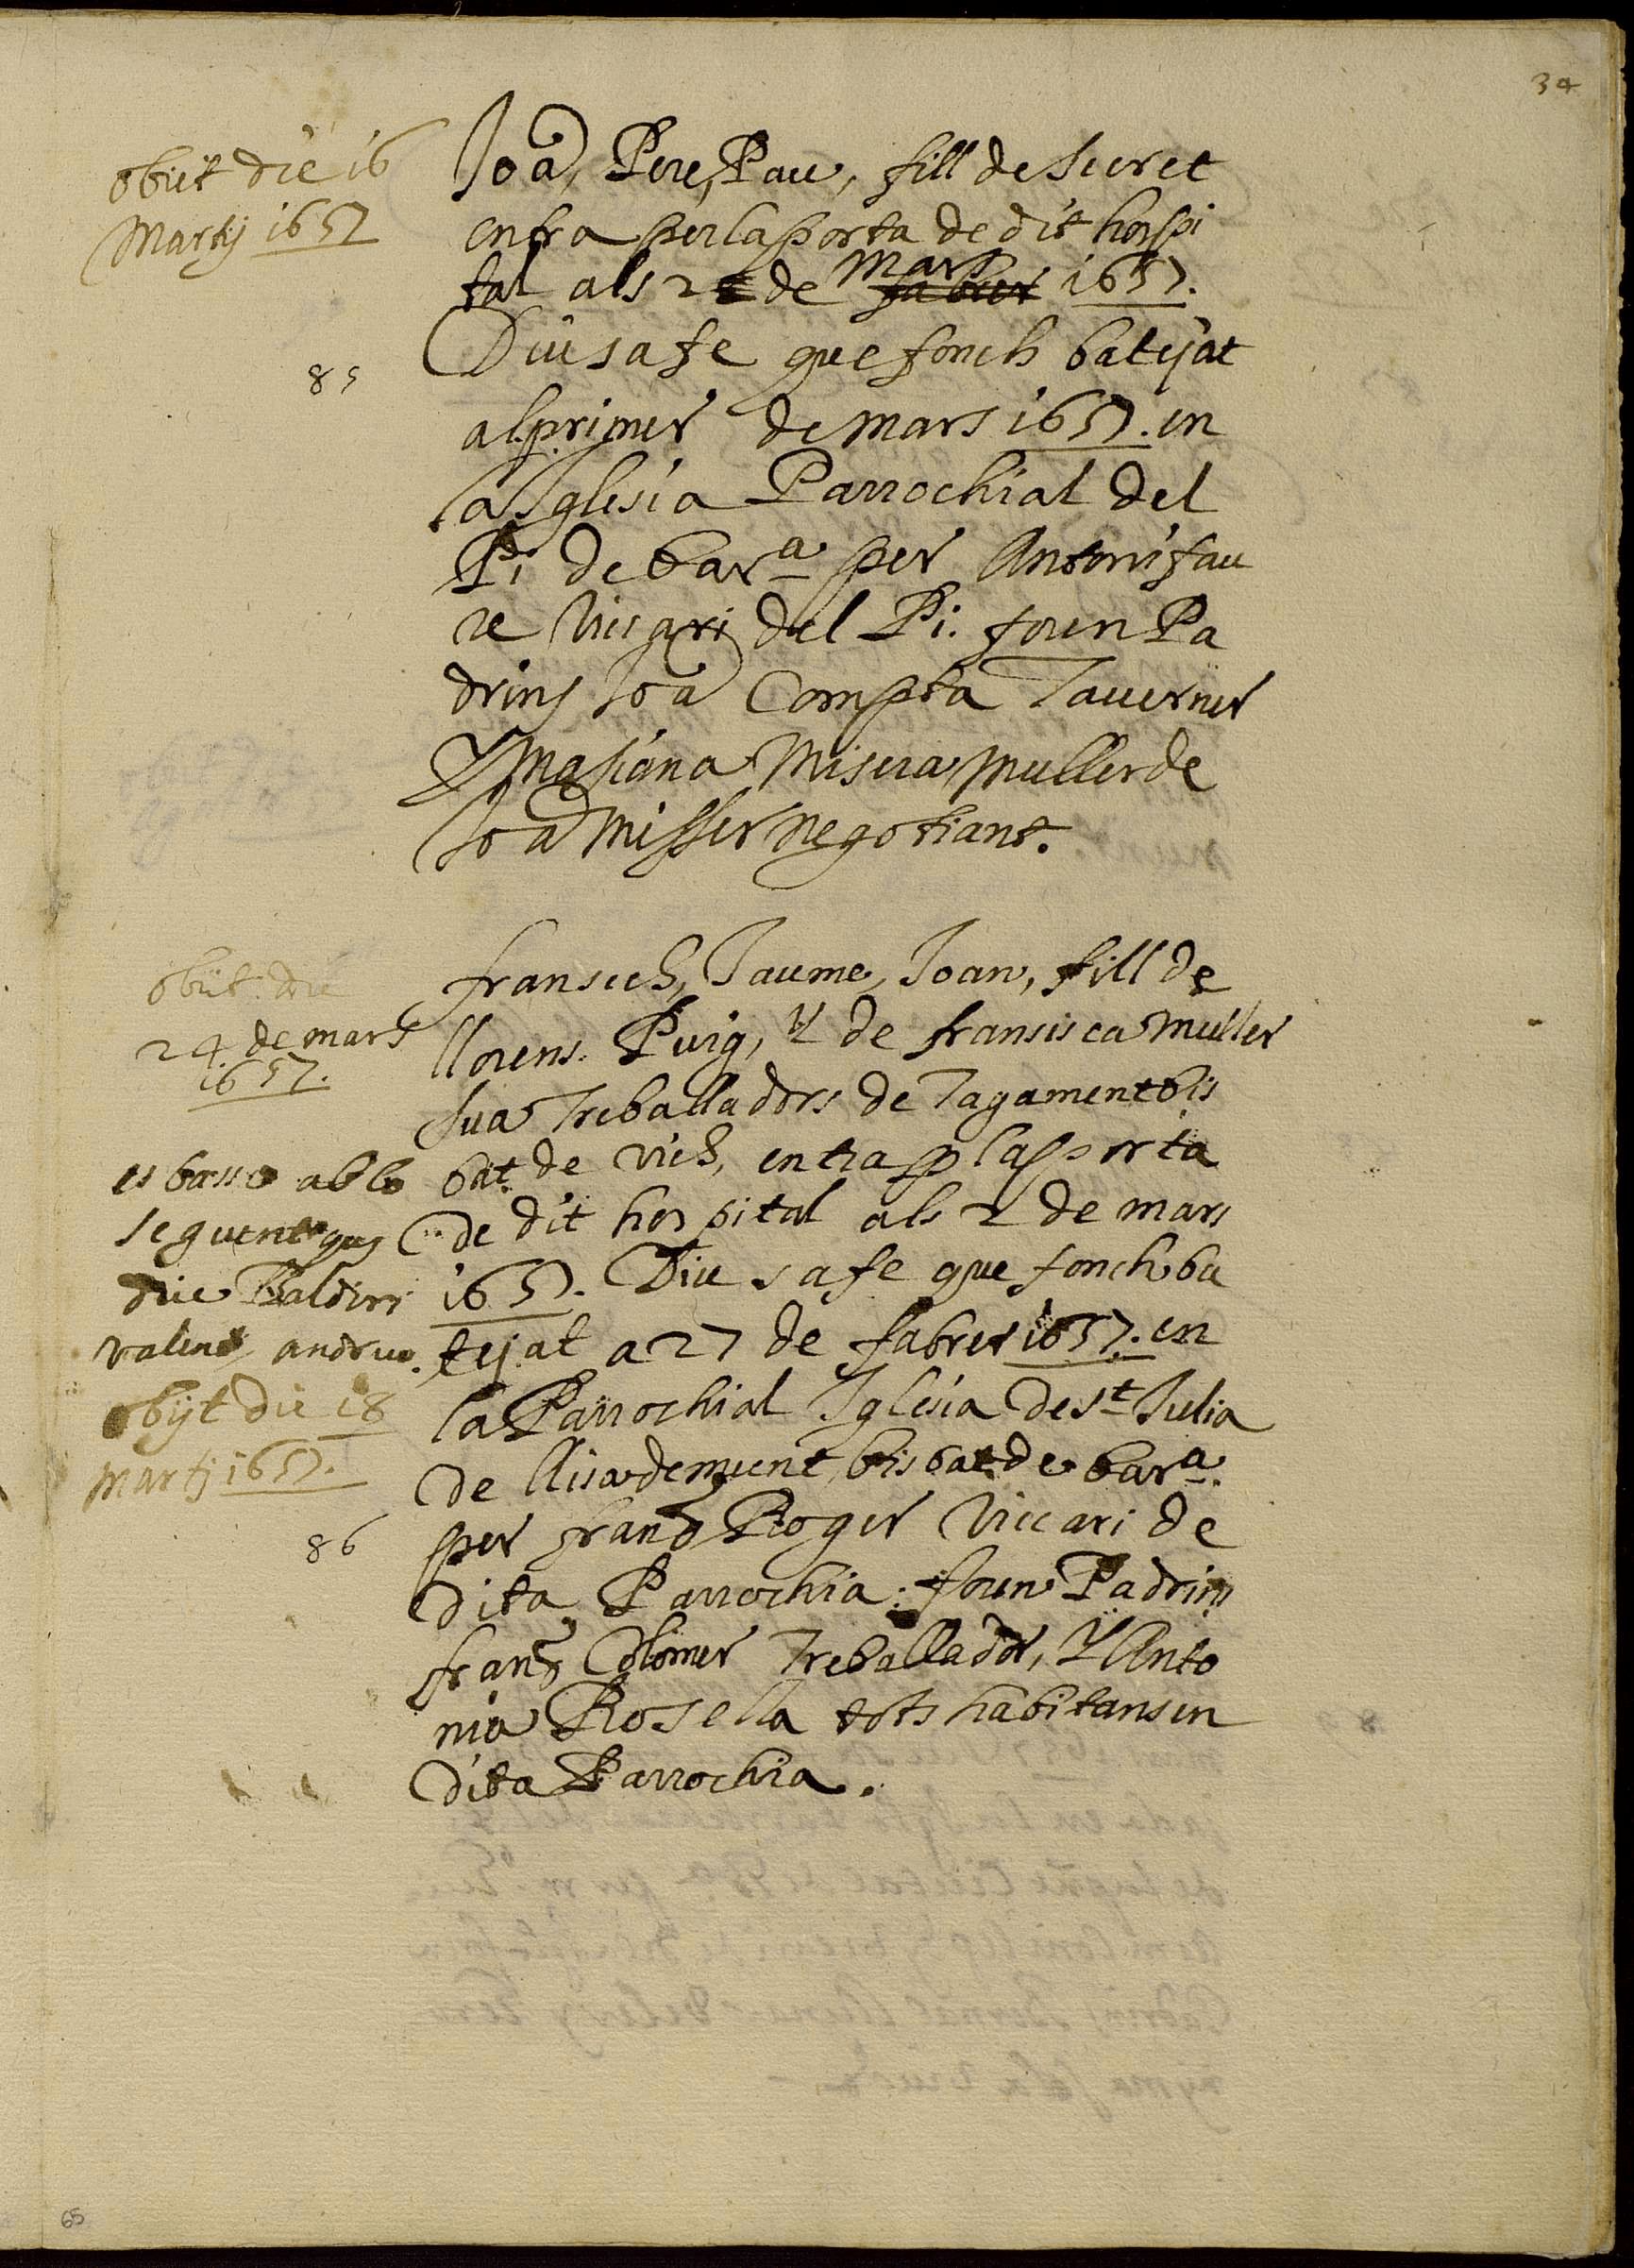 34
obiit die 16
Martij 1657
Joā, Pere, Pau, fill de Secret
entra per la porta de dit hospi
tal als 2 de mars 1657.
Diu sa fe que fonch batejat
85
al primer de mars 1657. en
la Iglesia Parrochial del
Pi de bar.a per Antoni fau
re Vicari del Pi. foren Pa
drins Joā Compta Tauerner
Y Mariana Misera muller de
Joā Misser negotiant.
obiit die
24 de mars
1657.
fransech, Jaume, Joan, fill de
llorens Puig, y de fransisca muller
sua Treballadors de Tagament bis
bat de Vich, entra p la porta
de dit hospital als 2 de mars
1657. Diu sa fe que fonch ba
tejat a 27 de fabrer 1657. en
la Parrochial Iglesia de st Julia
de llisa demunt, bisbat de bar.a
per frans Roger Viccari de
dita Parrochia: foren Padrins
frans Colomer Treballador, Y Anto
nia Rosella tots habitans en
dita Parrochia.
es basso ab lo
seguent que
diu Baldiri
valent andreu.
obijt die 18
Martj 1657.
86
65